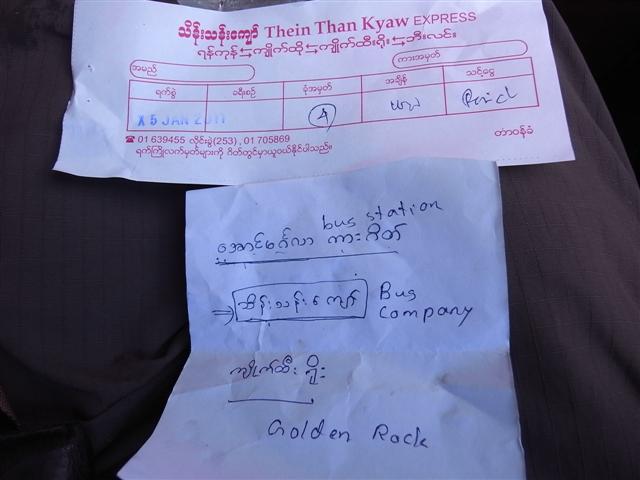 သိန်းသန်းကျော် Thein Than Kyaw EXPRESS
ရန်ကုန်⇆ကျိုက်ထို⇆ကျိုက်ထီးရိုး⇆ဘီးလင်း
အမည် ကားအမှတ်
ရက်စွဲ ခရီးစဉ် ခုံအမှတ် အချိန် သင့်ငွေ
5 JAN 2011 Paid
☎ 01 639455 လိုင်းခွဲ(253), 01 705869 တာဝန်ခံ
ရက်ကြိုလက်မှတ်များကို ဂိတ်တွင်မှာယူဝယ်နိုင်ပါသည်။
bus station
အောင်မင်္ဂလာ ကားဂိတ်
⇒ သိန်းသန်းကျော် Bus
Company
ကျိုက်ထီးရိုး
Golden Rock